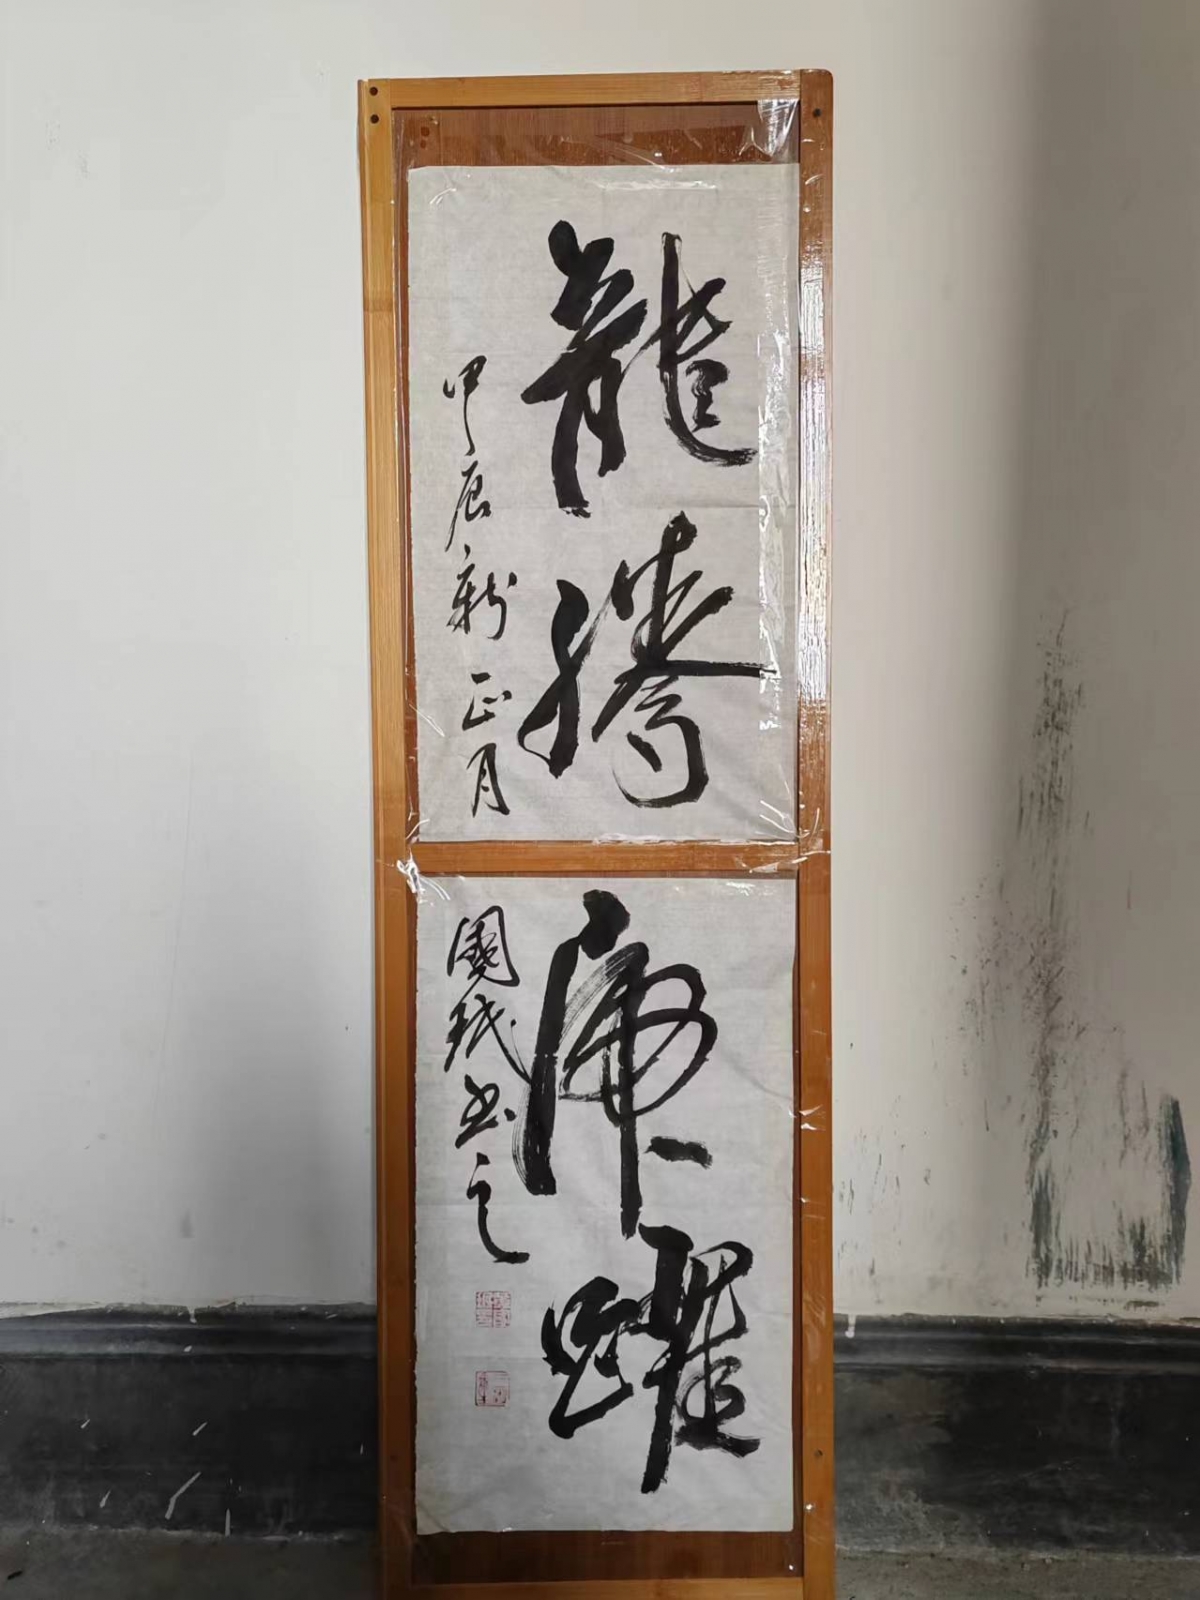 龍騰
虎躍
甲辰新正月
國珉書之